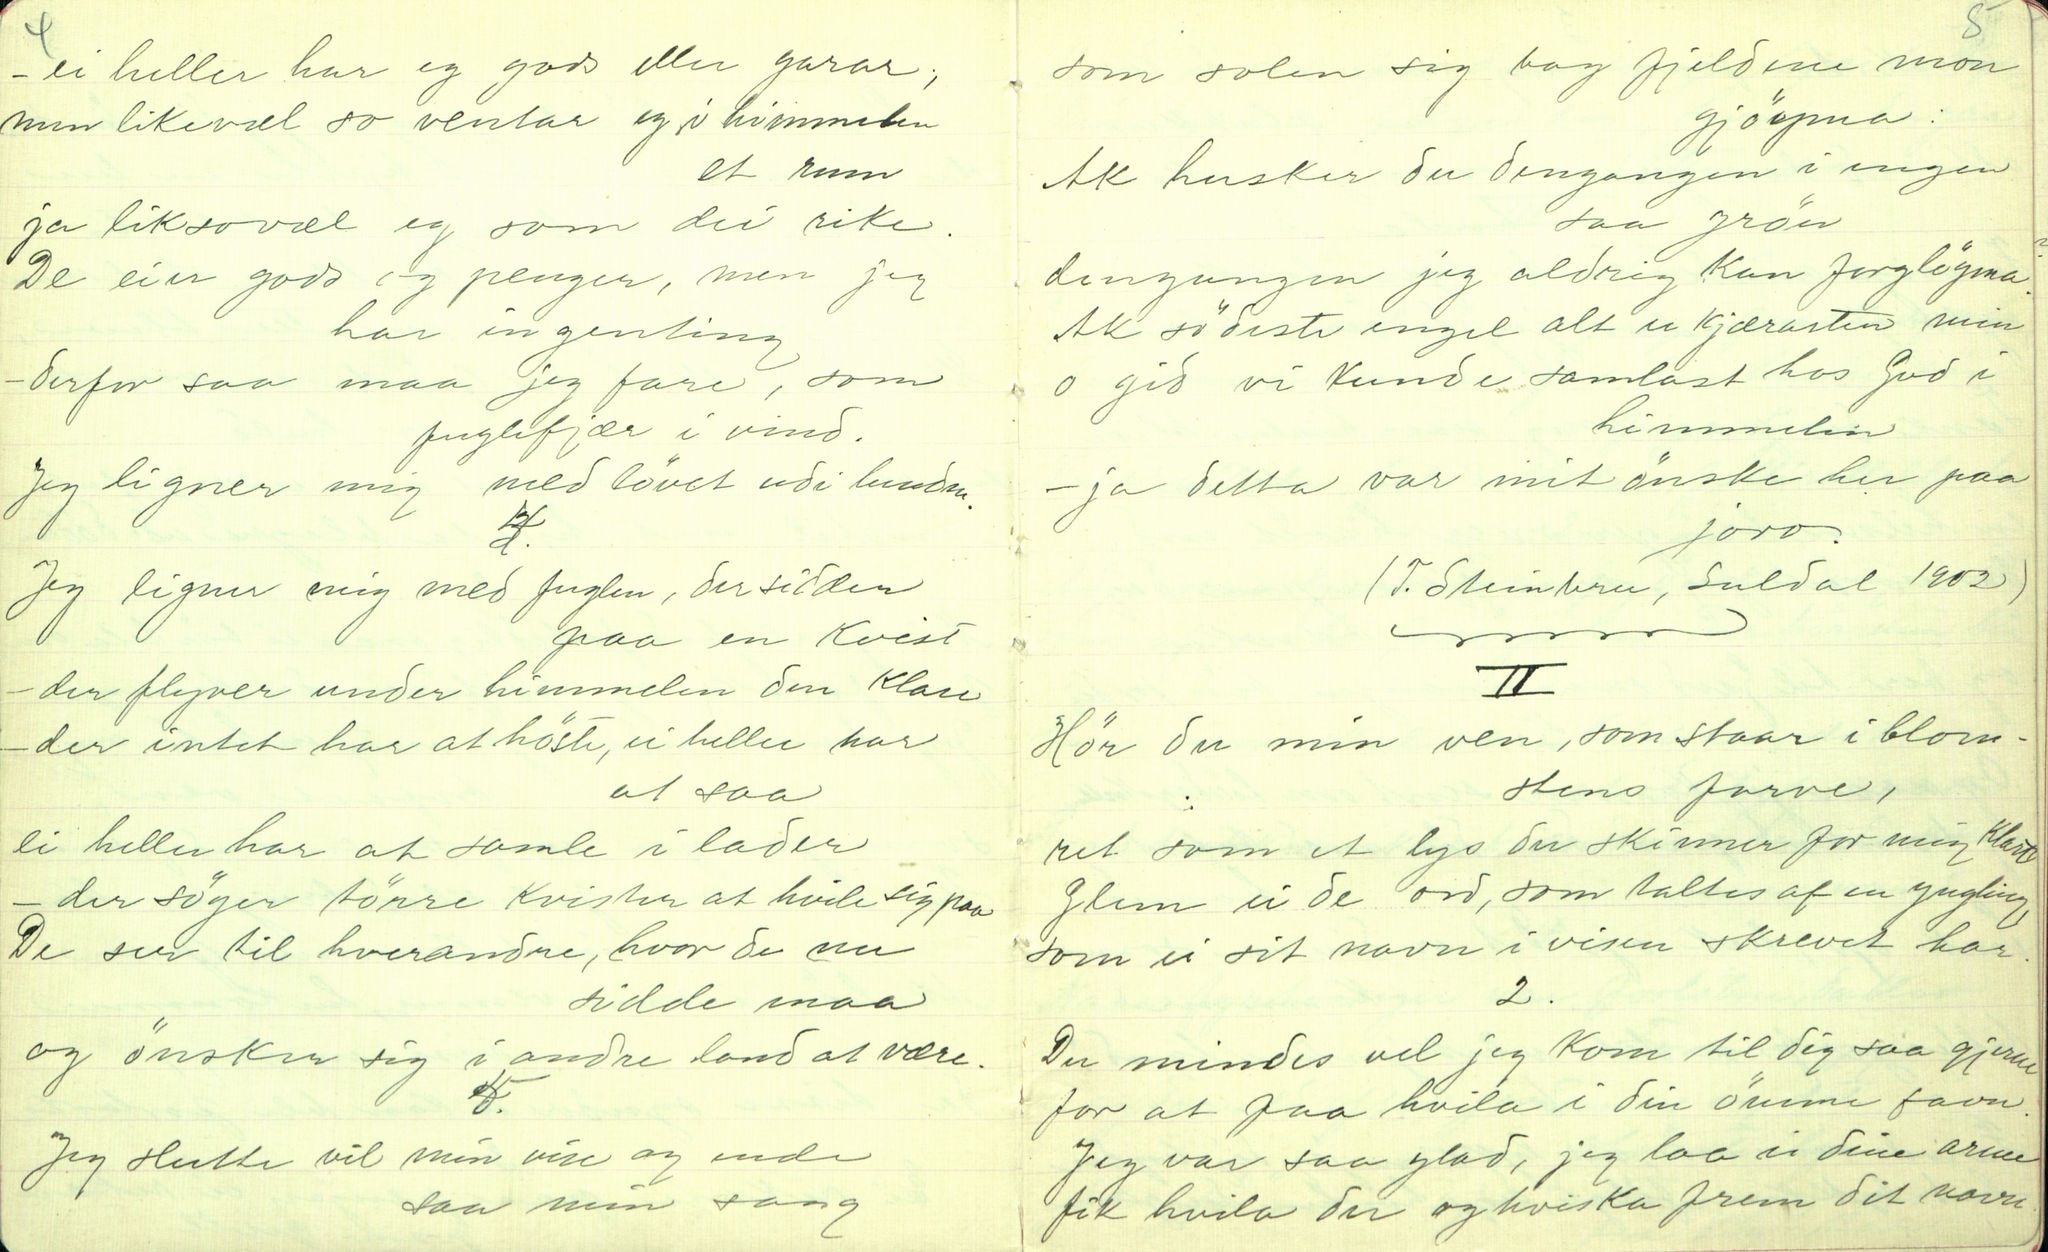 4
- ei heller har eg gods eller garar,
men likevæl so ventar eg i himmelen
et rum
ja liksovæl eg som dei rike.
De eier gods og penger, men jeg
har ingenting
- derfor saa maa jeg fare, som
fuglefjær i vind.
Jeg ligner mig med løvet udi lunden.
Jeg ligner mig med fuglen, der sidder
paa en kvist
- der flyver under himmelen den klare
- der intet har at höste, ei heller har
at saa
ei heller har at samle i lader
- der söger törre kvister at hvile sig paa
De ser til hverandre, hvor de nu
sidde maa
og önsker sig i andre land at være.
Jeg slutte vil min vise og ende
saa min sang
5
som solen sig bag fjeldene mon
gjöyma:
Ak husker du dengangen i engen
saa grön
dengangen jeg aldrig kan forglöyma.
Ak södeste engel alt er kjærasten min
o gid vi kunde samlast hos Gud i
himmelen
- ja detta var mit önske her paa
joro.
(T. Steinbru, Suldal 1902)
II
Hör du min ven, som staar i blom-
stens farve,
ret som et lys du skinner for mig klart
Glem ei de ord, som taltes af en yngling,
som ei sit navn i visen skrevet har.
2.
Du mindes vel jeg kom til dig saa gjerne
for at faa hvila i din ömme favn.
Jeg var saa glad, jeg laa i dine arme
fik hvila der og hviska frem dit navn.